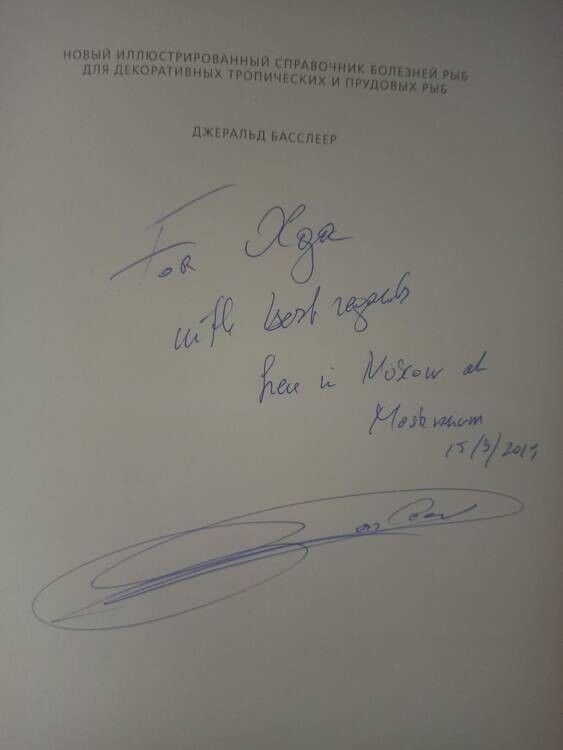 НОВЫЙ ИЛЛЮСТРИРОВАННЫЙ СПРАВОЧНИК БОЛЕЗНЕЙ РЫБ
ДЛЯ ДЕКОРАТИВНЫХ ТРОПИЧЕСКИХ И ПРУДОВЫХ РЫБ
ДЖЕРАЛЬД БАССЛЕЕР
For
with best regards
here in Moskow at
Moskvarium